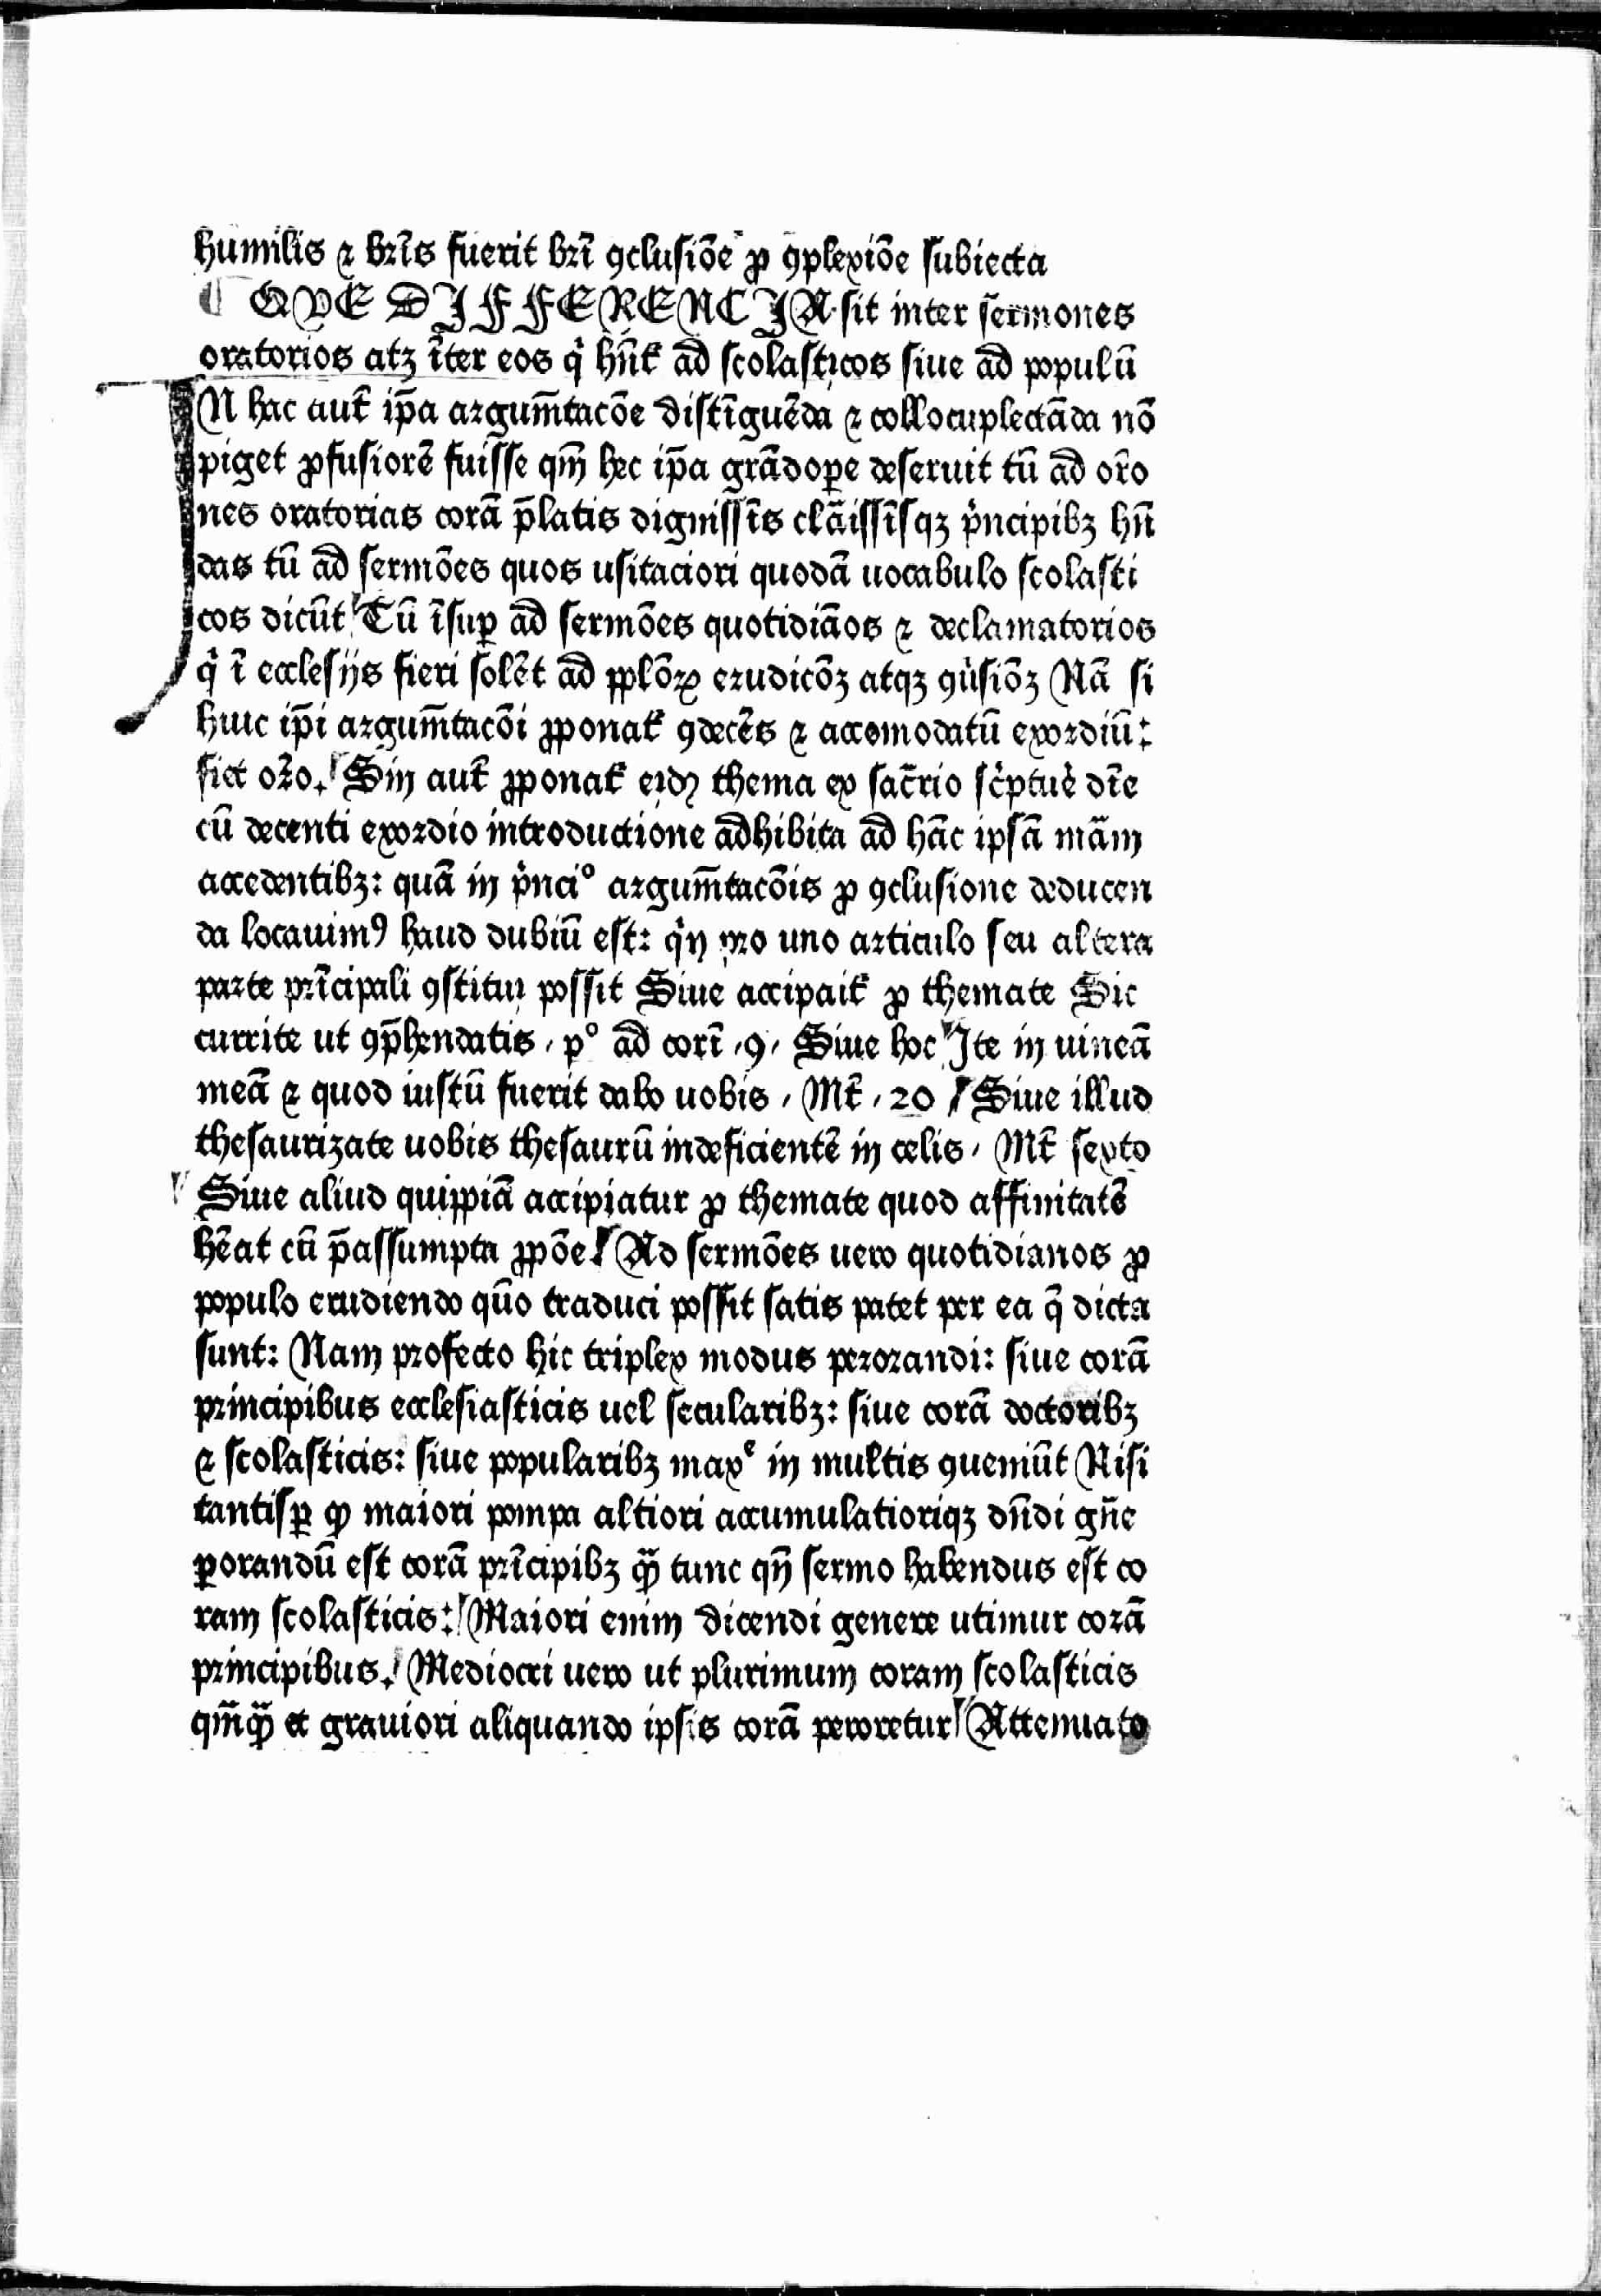 humilis ⁊ brīs fuerit brī ꝯclusiōe ꝓ ꝯplexiōe subiecta
QVE DIFFERENCIA sit inter sermones
oratorios atꝫ īter eos q̇ hn̄t᷑ ad scolasticos siue ad populū
IN hac aut̄ ip̄a argum̄tacōe distīguēda ⁊ collocuplectāda nō
piget ꝓfusiorē fuisse qm̄ hec ip̄a grādoꝑe deseruit tū ad or̄o
nes oratorias corā p̄latis dignissīs clāissīsqꝫ pͥncipibꝫ hn̄
das tū ad sermōes quos usitaciori quodā uocabulo scolasti
cos dicūt Tū īsuꝑ ad sermōes quotidiāos ⁊ declamatorios
q̇ ī ecclesijs fieri solēt ad pplōꝝ erudicōꝫ atqꝫ ꝯūsiōꝫ Nā si
huic ip̄i argum̄tacōi ꝓponat᷑ ꝯdecēs ⁊ accomodatū exordiū:
fiet or̄o. Sin aut̄ ꝓponat᷑ eidꝫ thema ex sac̄rio sc̍ptuē dīe
cū decenti exordio introductione adhibita ad hāc ipsā mām
accedentibꝫ: quā in pͥnciº argum̄tacōis ꝓ ꝯclusione deducen
da locauimꝰ haud dubiū est: qͥn pro uno articulo seu altera
parte prīcipali ꝯstitui possit Siue accipait᷑ ꝓ themate Sic
currite ut ꝯp̄hendatis, pº ad corī, 9, Siue hoc Ite in uineā
meā ⁊ quod iustū fuerit dabo uobis, Mt̄, 20 Siue illud
thesaurizate uobis thesaurū indeficientē in celis, Mt̄ sexto
Siue aliud quippiā accipiatur ꝓ themate quod affinitatē
hēat cū p̄assumpta ꝓpōe Ad sermōes uero quotidianos ꝓ
populo erudiendo quō traduci possit satis patet per ea q̄ dicta
sunt: Nam profecto hic triplex modus perorandi: siue corā
principibus ecclesiasticis uel secularibꝫ: siue corā doctoribꝫ
⁊ scolasticis: siue popularibꝫ maxᵉ in multis ꝯueniūt Nisi
tantisꝑ ꝙ maiori pompa altiori accumulatioriqꝫ dn̄di gn̄e
ꝑorandū est corā prīcipibꝫ qͣꝫ tunc qn̄ sermo habendus est co
ram scolasticis: Maiori enim dicendi genere utimur corā
principibus. Mediocri uero ut plurimum coram scolasticis
qm̄qͣꝫ et grauiori aliquando ipsis corā peroretur Attenuato